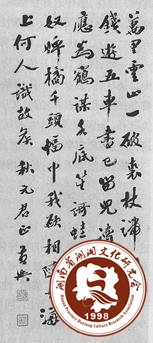 萬里雲山一破裘杖端
錢遊五車書已留兒讀
應為鶴謀水底笙歌蛙
奴婢橘千頭幅巾我欲相隨 海
上何人識故侯 秋元君正 黃興
湖南省湖湘文化研究会
1998
Hunan Province Huxiang Culture Research Association